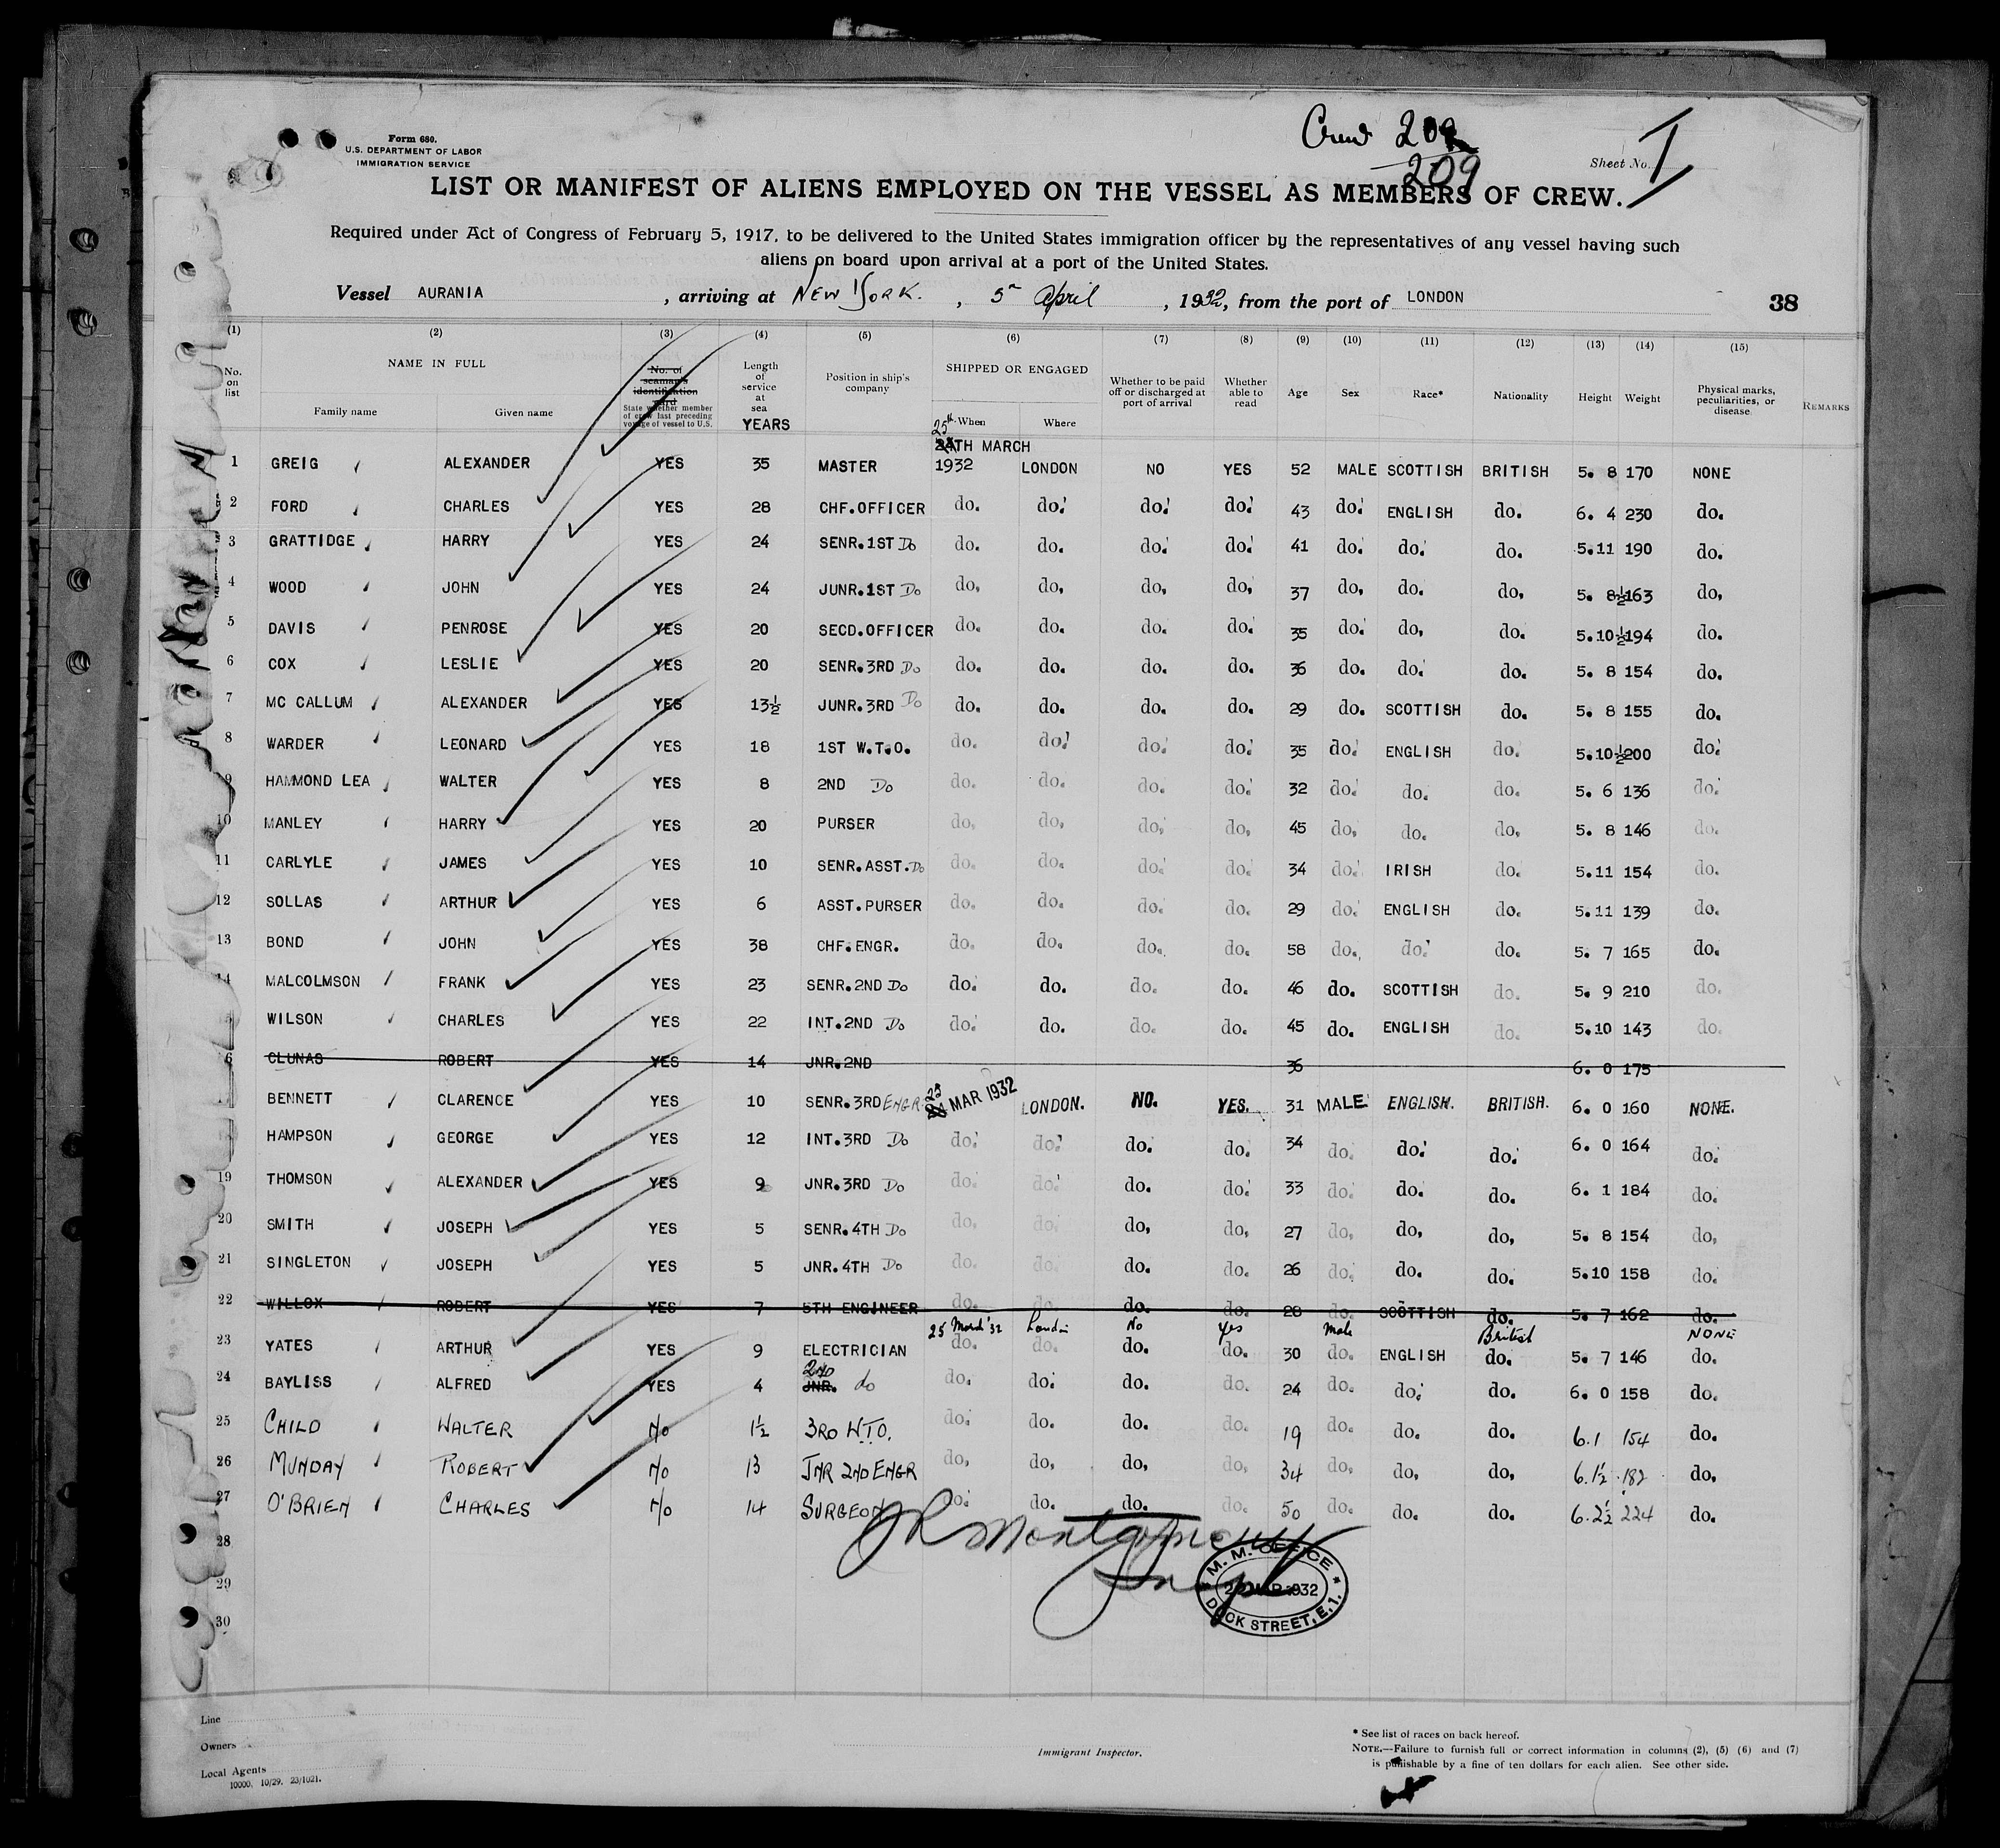 Form 680.
U.S. DEPARTMENT OF LABOR
IMMIGRATION SERVICE
Crew 209
209
Sheet No. 1
LIST OR MANIFEST OF ALIENS EMPLOYED ON THE VESSEL AS MEMBERS OF CREW.
Required under Act of Congress of February 5, 1917, to be delivered to the United States immigration officer by the representatives of any vessel having such
aliens on board upon arrival at a port of the United States.
Vessel AURANIA , arriving at NEW YORK. , 5 April , 1932, from the port of LONDON 38
(1) (2) (3) (4) (5) (6) (7) (8) (9) (10) (11) (12) (13) (14) (15)
No. on list NAME IN FULL Family name Given name No. of seaman's identification card State whether member of crew last preceding voyage of vessel to U.S. Length of service at sea YEARS Position in ship's company SHIPPED OR ENGAGED When Where Whether to be paid off or discharged at port of arrival Whether able to read Age Sex Race* Nationality Height Weight Physical marks, peculiarities, or disease REMARKS
25th 24TH MARCH
1 GREIG ALEXANDER YES 35 MASTER 1932 LONDON NO YES 52 MALE SCOTTISH BRITISH 5. 8 170 NONE
2 FORD CHARLES YES 28 CHF.OFFICER do. do. do. do. 43 do. ENGLISH do. 6. 4 230 do.
3 GRATTIDGE HARRY YES 24 SENR.1ST Do do. do. do. do. 41 do. do. do. 5.11 190 do.
4 WOOD JOHN YES 24 JUNR.1ST Do do. do. do. do. 37 do. do. do. 5. 8½ 163 do.
5 DAVIS PENROSE YES 20 SECD.OFFICER do. do. do. do. 35 do. do. do. 5.10½ 194 do.
6 COX LESLIE YES 20 SENR.3RD Do do. do. do. do. 36 do. do. do. 5. 8 154 do.
7 MC CALLUM ALEXANDER YES 13½ JUNR.3RD Do do. do. do. do. 29 do. SCOTTISH do. 5. 8 155 do.
8 WARDER LEONARD YES 18 1ST W.T.O. do. do. do. do. 35 do. ENGLISH do. 5.10½ 200 do.
9 HAMMOND LEA WALTER YES 8 2ND Do do. do. do. do. 32 do. do. do. 5. 6 136 do.
10 MANLEY HARRY YES 20 PURSER do. do. do. do. 45 do. do. do. 5. 8 146 do.
11 CARLYLE JAMES YES 10 SENR.ASST.Do do. do. do. do. 34 do. IRISH do. 5.11 154 do.
12 SOLLAS ARTHUR YES 6 ASST.PURSER do. do. do. do. 29 do. ENGLISH do. 5.11 139 do.
13 BOND JOHN YES 38 CHF.ENGR. do. do. do. do. 58 do. do. do. 5. 7 165 do.
14 MALCOLMSON FRANK YES 23 SENR.2ND Do do. do. do. do. 46 do. SCOTTISH do. 5. 9 210 do.
WILSON CHARLES YES 22 INT.2ND Do do. do. do. do. 45 do. ENGLISH do. 5.10 143 do.
6 CLUNAS ROBERT YES 14 JNR.2ND 36 6. 0 175
BENNETT CLARENCE YES 10 SENR.3RD ENGR. 25 MAR 1932 LONDON. NO. YES. 31 MALE ENGLISH. BRITISH. 6. 0 160 NONE.
HAMPSON GEORGE YES 12 INT.3RD Do do. do. do. do. 34 do. do. do. 6. 0 164 do.
19 THOMSON ALEXANDER YES 9 JNR.3RD Do do. do. do. do. 33 do. do. do. 6. 1 184 do.
20 SMITH JOSEPH YES 5 SENR.4TH Do do. do. do. do. 27 do. do. do. 5. 8 154 do.
21 SINGLETON JOSEPH YES 5 JNR.4TH Do do. do. do. do. 26 do. do. do. 5.10 158 do.
22 WILLOX ROBERT YES 7 5TH ENGINEER do. do. do. do. 28 do. SCOTTISH do. 5. 7 162 do.
25 March '32 London No Yes Male British NONE
23 YATES ARTHUR YES 9 ELECTRICIAN do. do. do. do. 30 do. ENGLISH do. 5. 7 146 do.
24 BAYLISS ALFRED YES 4 JNR. 2ND do do. do. do. do. 24 do. do. do. 6. 0 158 do.
25 CHILD WALTER No 1½ 3RD W.T.O. do. do. do. do. 19 do. do. do. 6.1 154 do.
26 MUNDAY ROBERT No 13 JNR 2ND ENGR do. do. do. do. 34 do. do. do. 6.1½ 182 do.
27 O'BRIEN CHARLES No 14 SURGEON do. do. do. do. 50 do. do. do. 6.2½ 224 do.
28
JR Montgomery
29
30
M. M. OFFICE
MAR 1932
DOCK STREET, E.1.
Line
Owners
Local Agents
10000. 10/29. 23/1021.
Immigrant Inspector.
* See list of races on back hereof.
NOTE.—Failure to furnish full or correct information in columns (2), (5) (6) and (7)
is punishable by a fine of ten dollars for each alien. See other side.